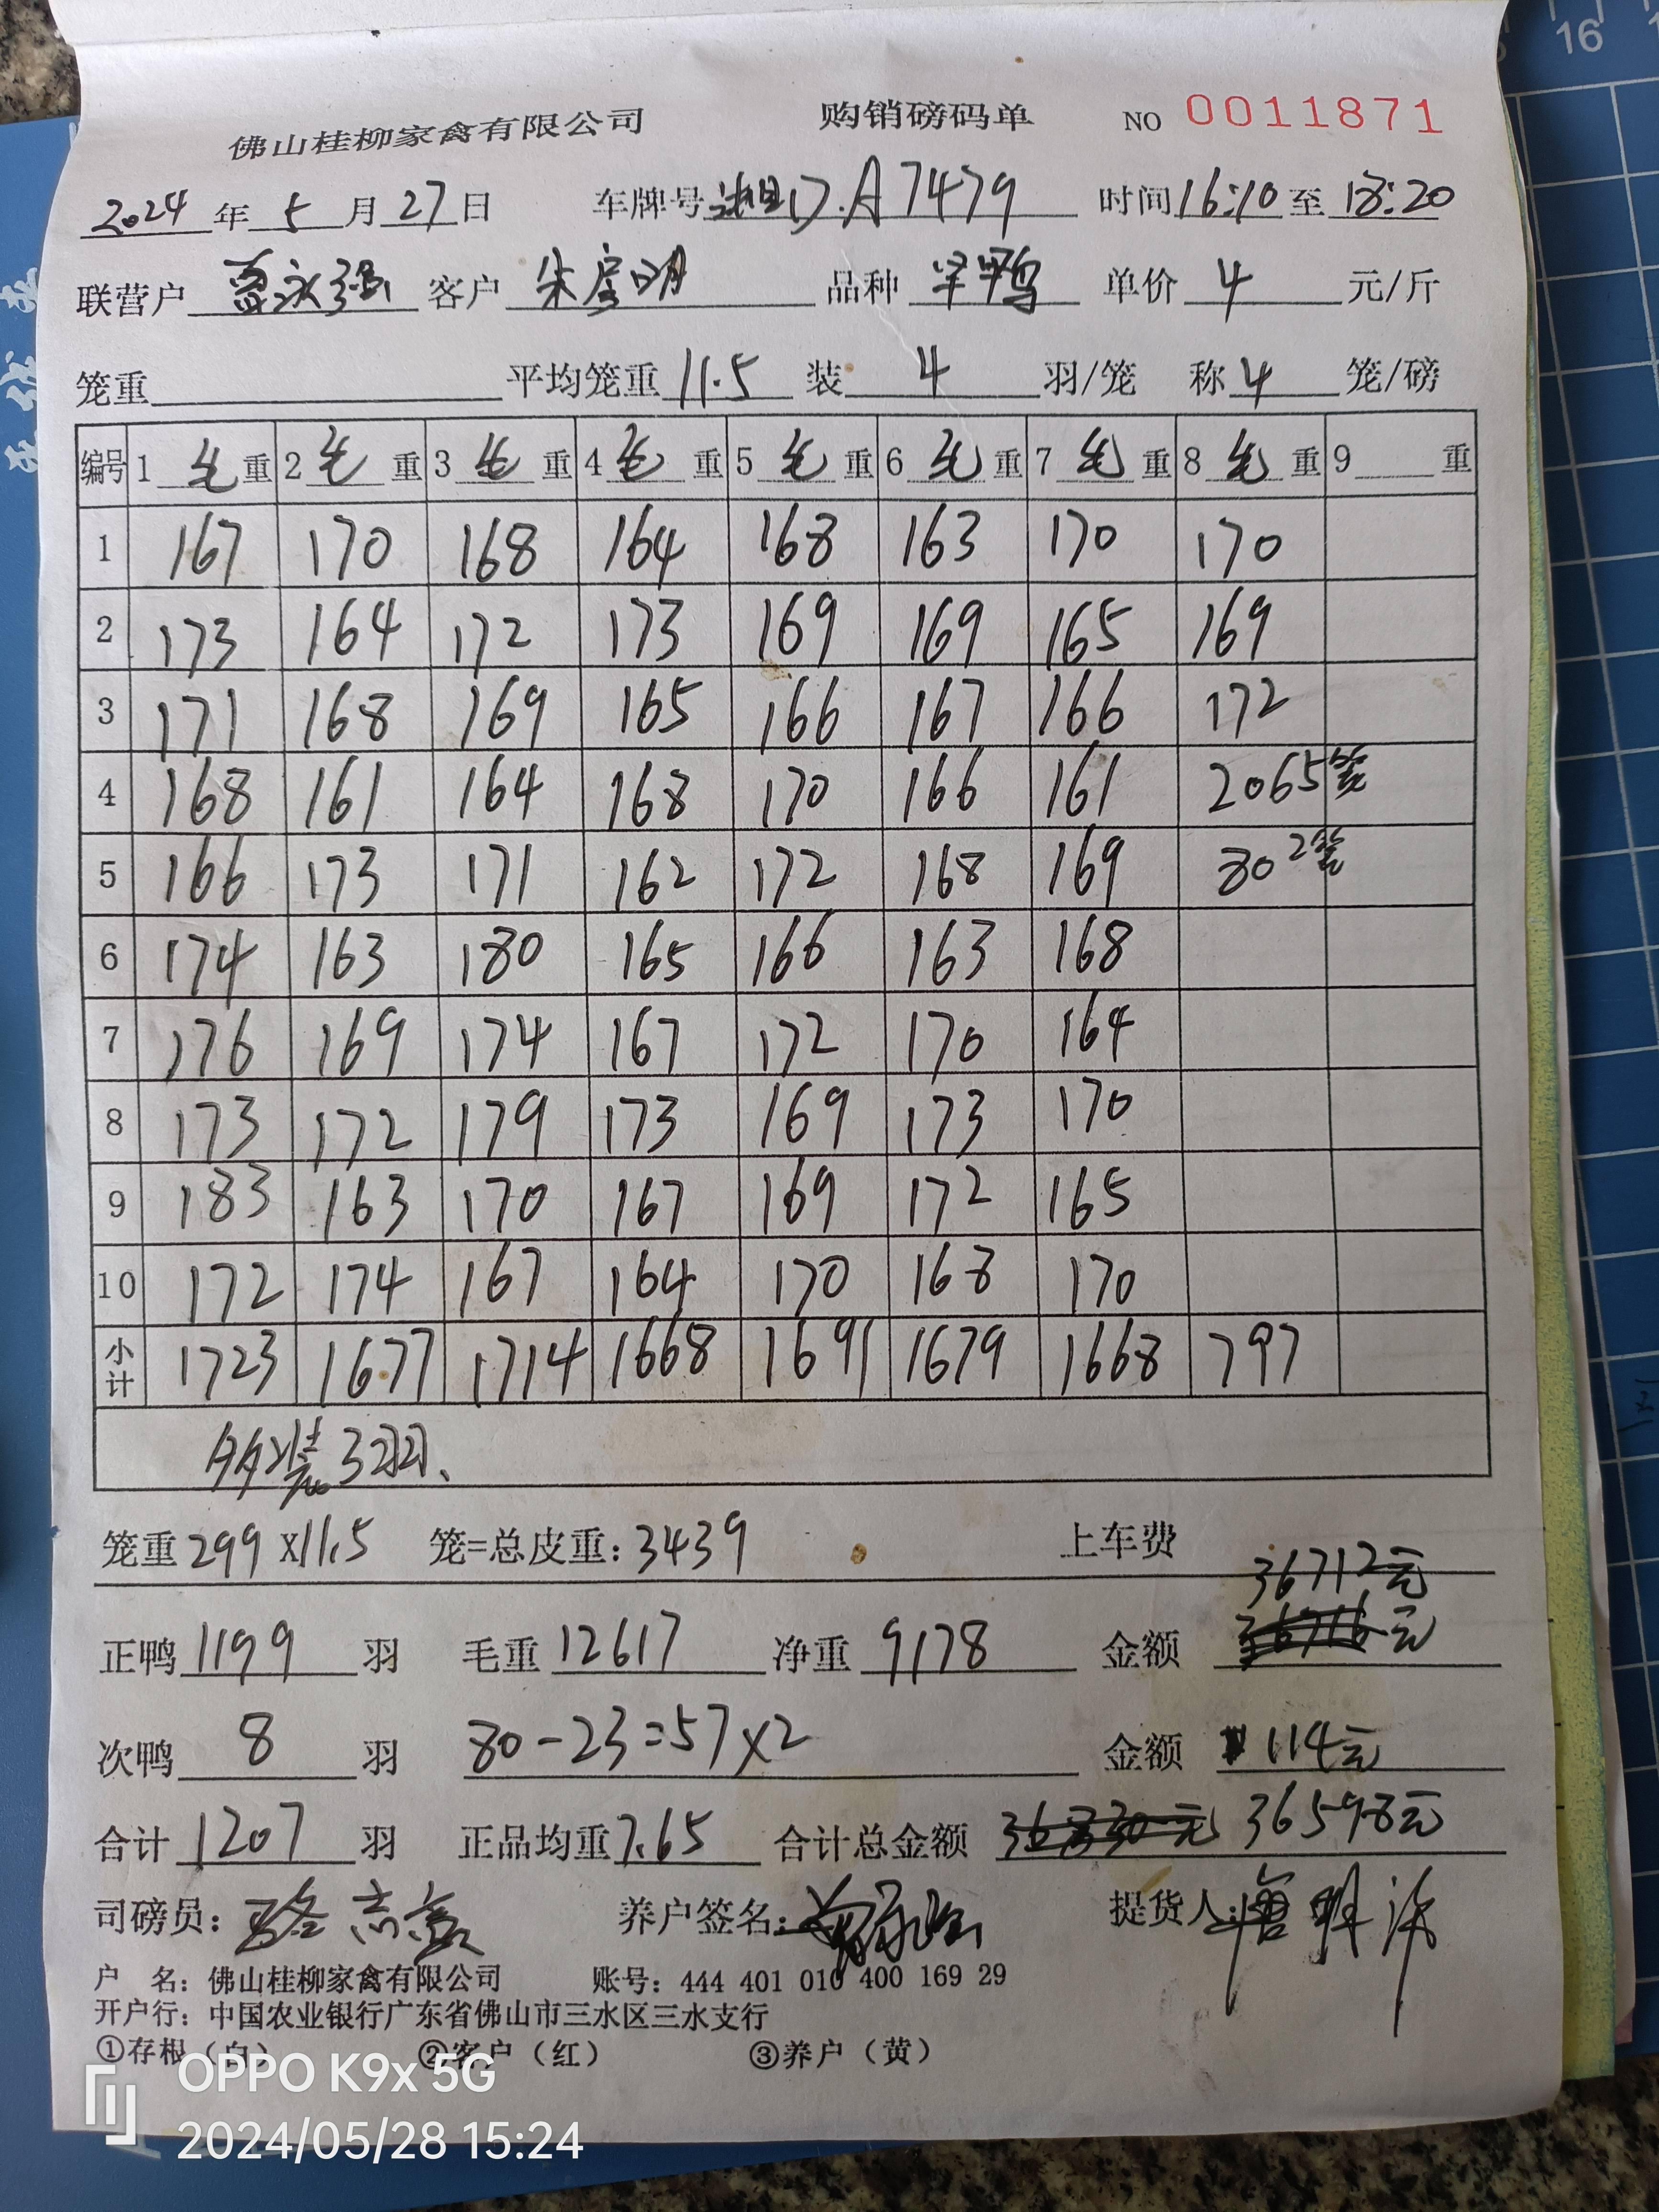 16
佛山桂柳家禽有限公司 购销磅码单 NO 0011871
2024 年 5 月 27 日 车牌号 湘D.A7479 时间 16:10 至 18:20
联营户 永强 客户 朱彦明 品种 鸭 单价 4 元/斤
笼重 平均笼重 11.5 装 4 羽/笼 称 4 笼/磅
编号 1 毛 重 2 毛 重 3 毛 重 4 毛 重 5 毛 重 6 毛 重 7 毛 重 8 毛 重 9 重
1 167 170 168 164 168 163 170 170
2 173 164 172 173 169 169 165 169
3 171 168 169 165 166 167 166 172
4 168 161 164 168 170 166 161 206 5笼
5 166 173 171 162 172 168 169 80 2笼
6 174 163 180 165 166 163 168
7 176 169 174 167 172 170 164
8 173 172 179 173 169 173 170
9 183 163 170 167 169 172 165
10 172 174 167 164 170 168 170
小计 1723 1677 1714 1668 1691 1679 1668 797
多装3羽、
笼重 299 X11.5 笼=总皮重: 3439 上车费
36712元
正鸭 1199 羽 毛重 12617 净重 9178 金额 36716元
次鸭 8 羽 80-23=57×2 金额 114元
合计 1207 羽 正品均重 7.65 合计总金额 36830元 36598元
司磅员: 骆志 养户签名: 提货人:
户 名: 佛山桂柳家禽有限公司 账号: 444 401 010 400 169 29
开户行: 中国农业银行广东省佛山市三水区三水支行
①存根（白） ②客户（红） ③养户（黄）
OPPO K9x 5G
2024/05/28 15:24